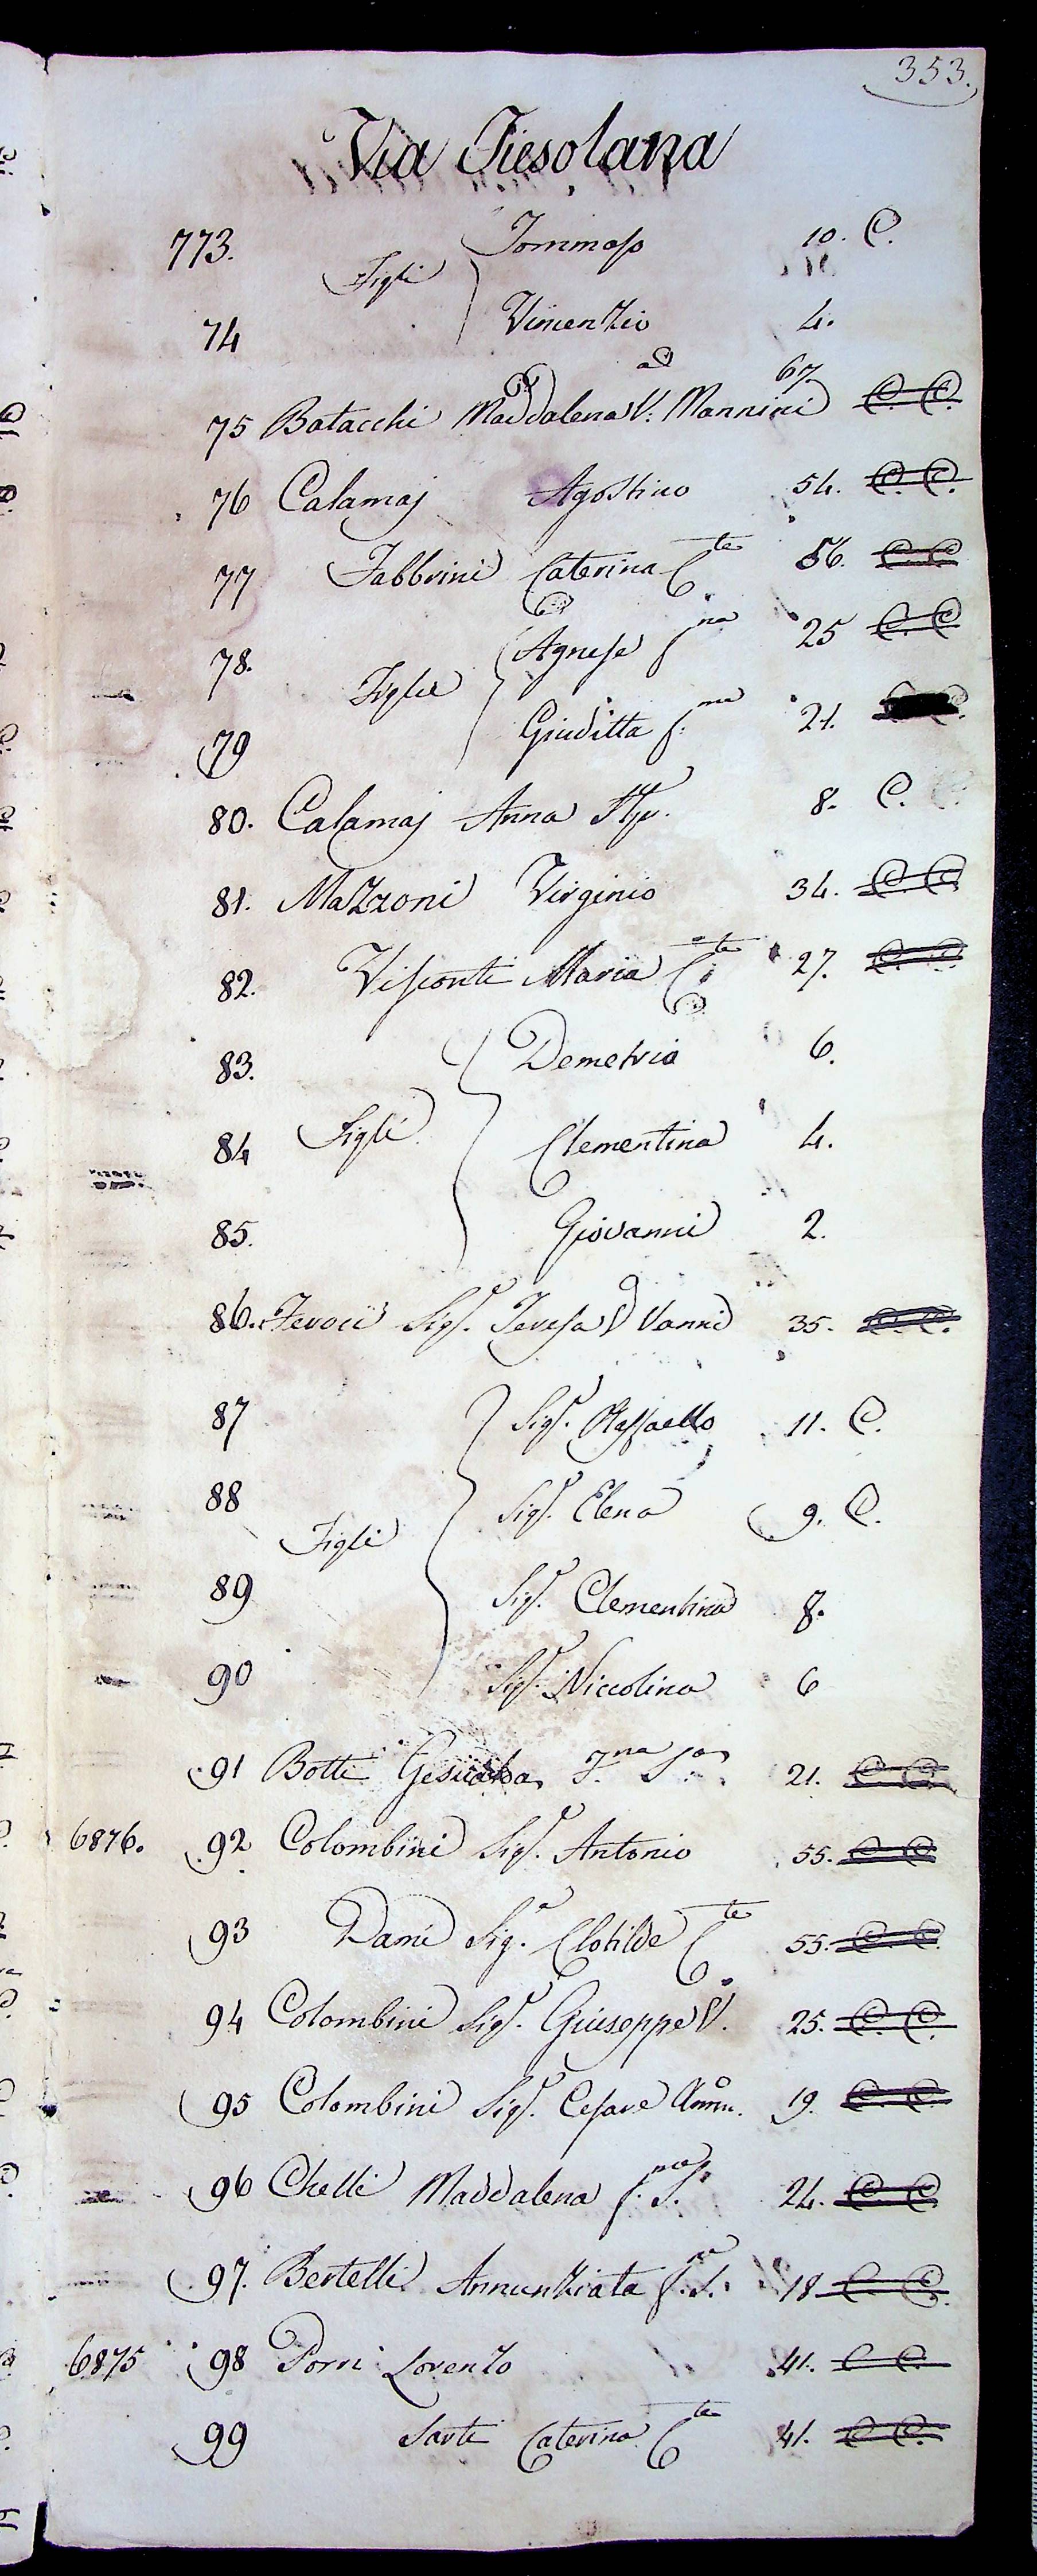 353.
Via Fiesolana
773. Tommaso 10. C.
Figli
74 Vincenzio 4.
75 Batacchi Maddalena Vᵃ. Mannini 67 C. C.
76 Calamaj Agostino 54. C. C.
77 Fabbrini Caterina Cᵗᵉ 56. C. C.
78. Agnese fⁿᵃ 25 C. C.
Figlie
79 Giuditta f.ⁿᵃ 21.
80. Calamaj Anna 8. C.
81. Mazzoni Virginio 34. C. C.
82. Visconti Maria Cᵗᵉ 27. C. C.
83. Demetria 6.
84 Figli Clementina 4.
85. Giovanni 2.
86. Feroci Sigʳᵃ. Teresa Vᵃ Vanni 35. C. C.
87 Sigʳ. Raffaello 11. C.
88 Sigʳ. Elena 9. C.
Figli
89 Sigʳ. Clementina 8.
90 Sigʳ. Niccolina 6
91 Botti F.ⁿᵃ Sᵃ 21. C. C.
6876. 92 Colombini Sigʳ. Antonio 55. C. C.
93 Dami Sigᵃ. Clotilde Cᵗᵉ 55. C. C.
94 Colombini Sigʳ. Giuseppe V. 25. C. C.
95 Colombini Sigʳ. Cesare Ammº. 19. C. C.
96 Chelli Maddalena f.ⁿᵃ S. 24. C. C.
97. Bertelli Annunziata f.ⁿᵃ S. 18 C. C.
6875 98 Porri Lorenzo 41. C. C.
99 Sarti Caterina Cᵗᵉ 41. C. C.